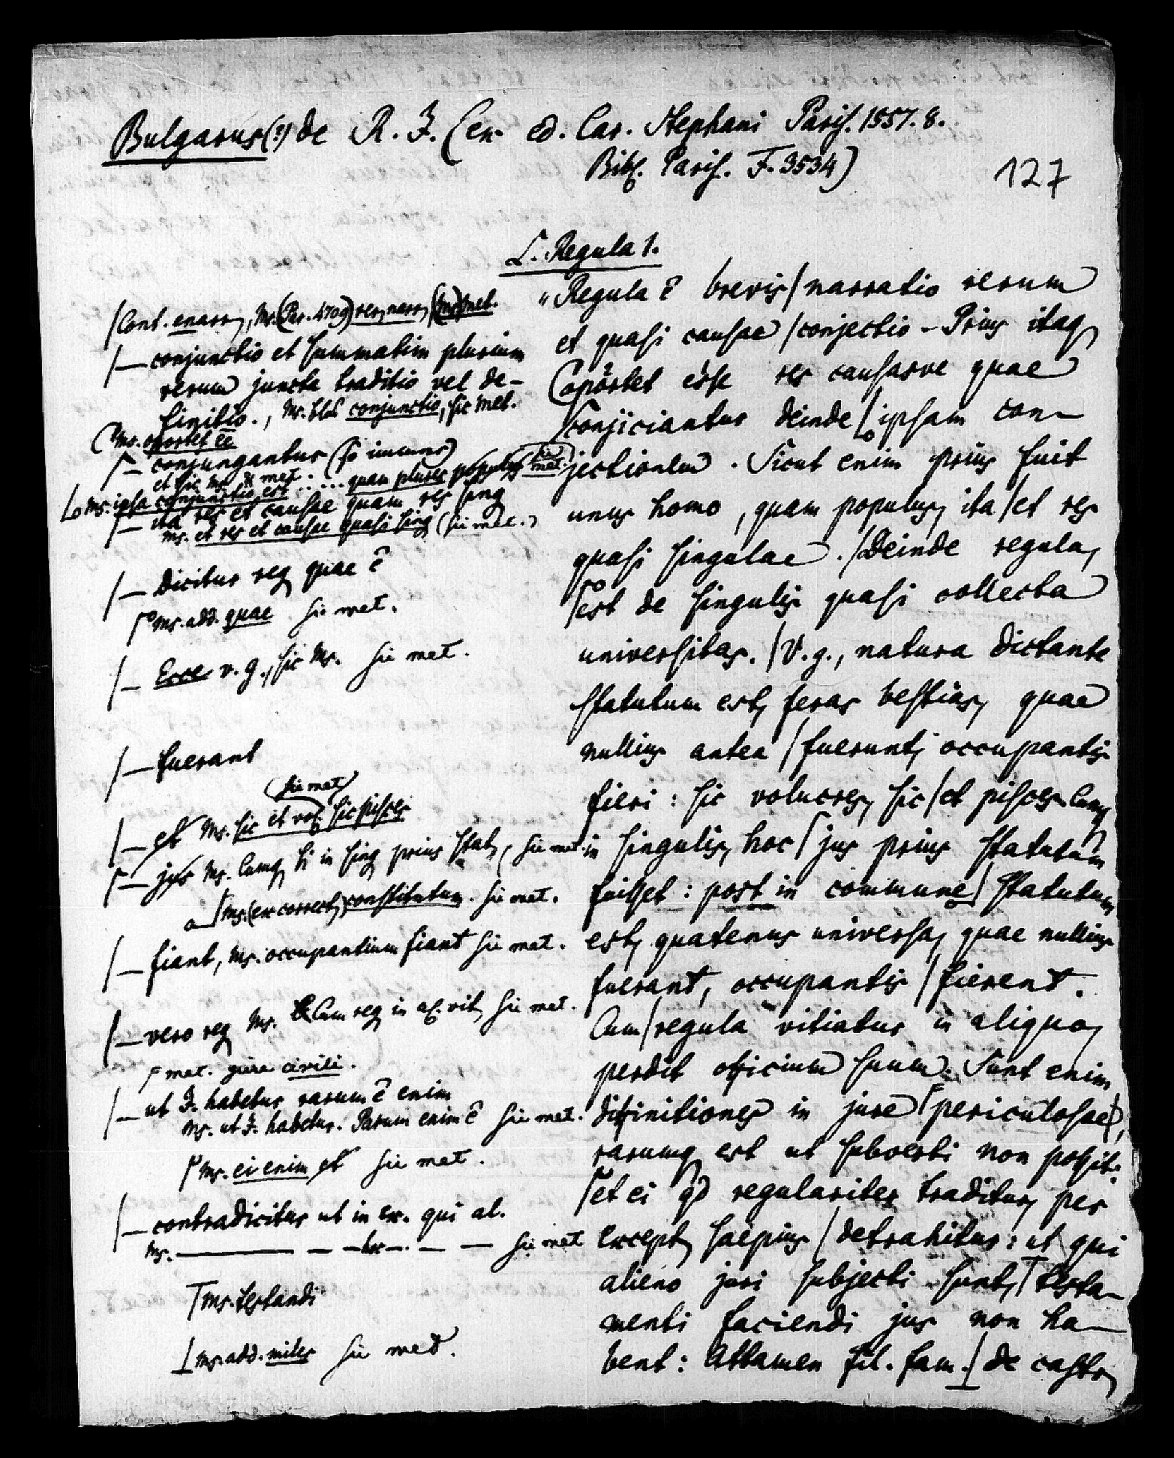 Bulgarus(?) de R. J. (ex ed. Car. Stephani Paris. 1557. 8.
Bibl. Paris. F. 3534)
127
L. Regula 1.
"Regula ē brevis / narratio rerum
et quasi causae / conjectio – Prius itaq
oportet esse res causasve quae
conjiciantur deinde ipsam con-
jectionem. Sicut enim prius fuit
unus homo, quam populus, ita / et res
quasi singulae. / Deinde regula,
est de singulis quasi collecta
universitas. / V. g., natura dictante
statutum est, feras bestias, quae
nullius antea / fuerunt, occupantis
fieri : sic volucres, sic / et pisces. Cumq
in singulis, hoc / jus prius statutum
fuisset : post in commune / statutum
est, quatenus universa, quae nullius
fuerant, occupantis / fierent.
Cum / regula vitiatur in aliquo,
perdit officium suum. Sunt enim
difinitiones in jure periculosae,
rarumq est ut subverti non possit.
et ei qd regulariter traditur, per
except, saepius / detrahitur : ut qui
alieno juri subjecti sunt, testa-
menti faciendi jus non ha-
bent : Attamen fil. fam. / de castr,
/ Cont. enarr, Ms. (Par. 4709) rer, narr, (Ms) met.
/— conjunctio et summatim plurium
rerum juncta traditio vel de-
finitio., Ms. conjunctio, sic met.
Ms. oportet ee
/— conjungantur
et sic Ms. & met. . . . . quam plures populus sic met
Ms. ipsa conjunctio est
/— ita res et causae quam res sing
Ms. et res et causae quasi sing (sic met.)
/— dicitur reg, quae ē
Ms. add. quae sic met.
/— Ecce v. g., sic Ms. sic met.
/— fuerant
(sic met)
/— et Ms. sic et vol. sic pisces
/— jus Ms. Cumq si in sing prius stat, sic met
Ms. (ex correct) constitutum. sic met.
/— fiant, Ms. occupantium fiant sic met.
/— vero reg Ms. Cum reg in al. vit, sic met.
met. jure civili.
/— ut J. habetur rarum ē enim
Ms. ut J. habetur. Parum enim ē sic met.
Ms. ei enim et sic met.
/— contradicitur ut in ex. qui al.
Ms. — — — — — sic met
Ms. testandi
Ms. add. miles sic met.